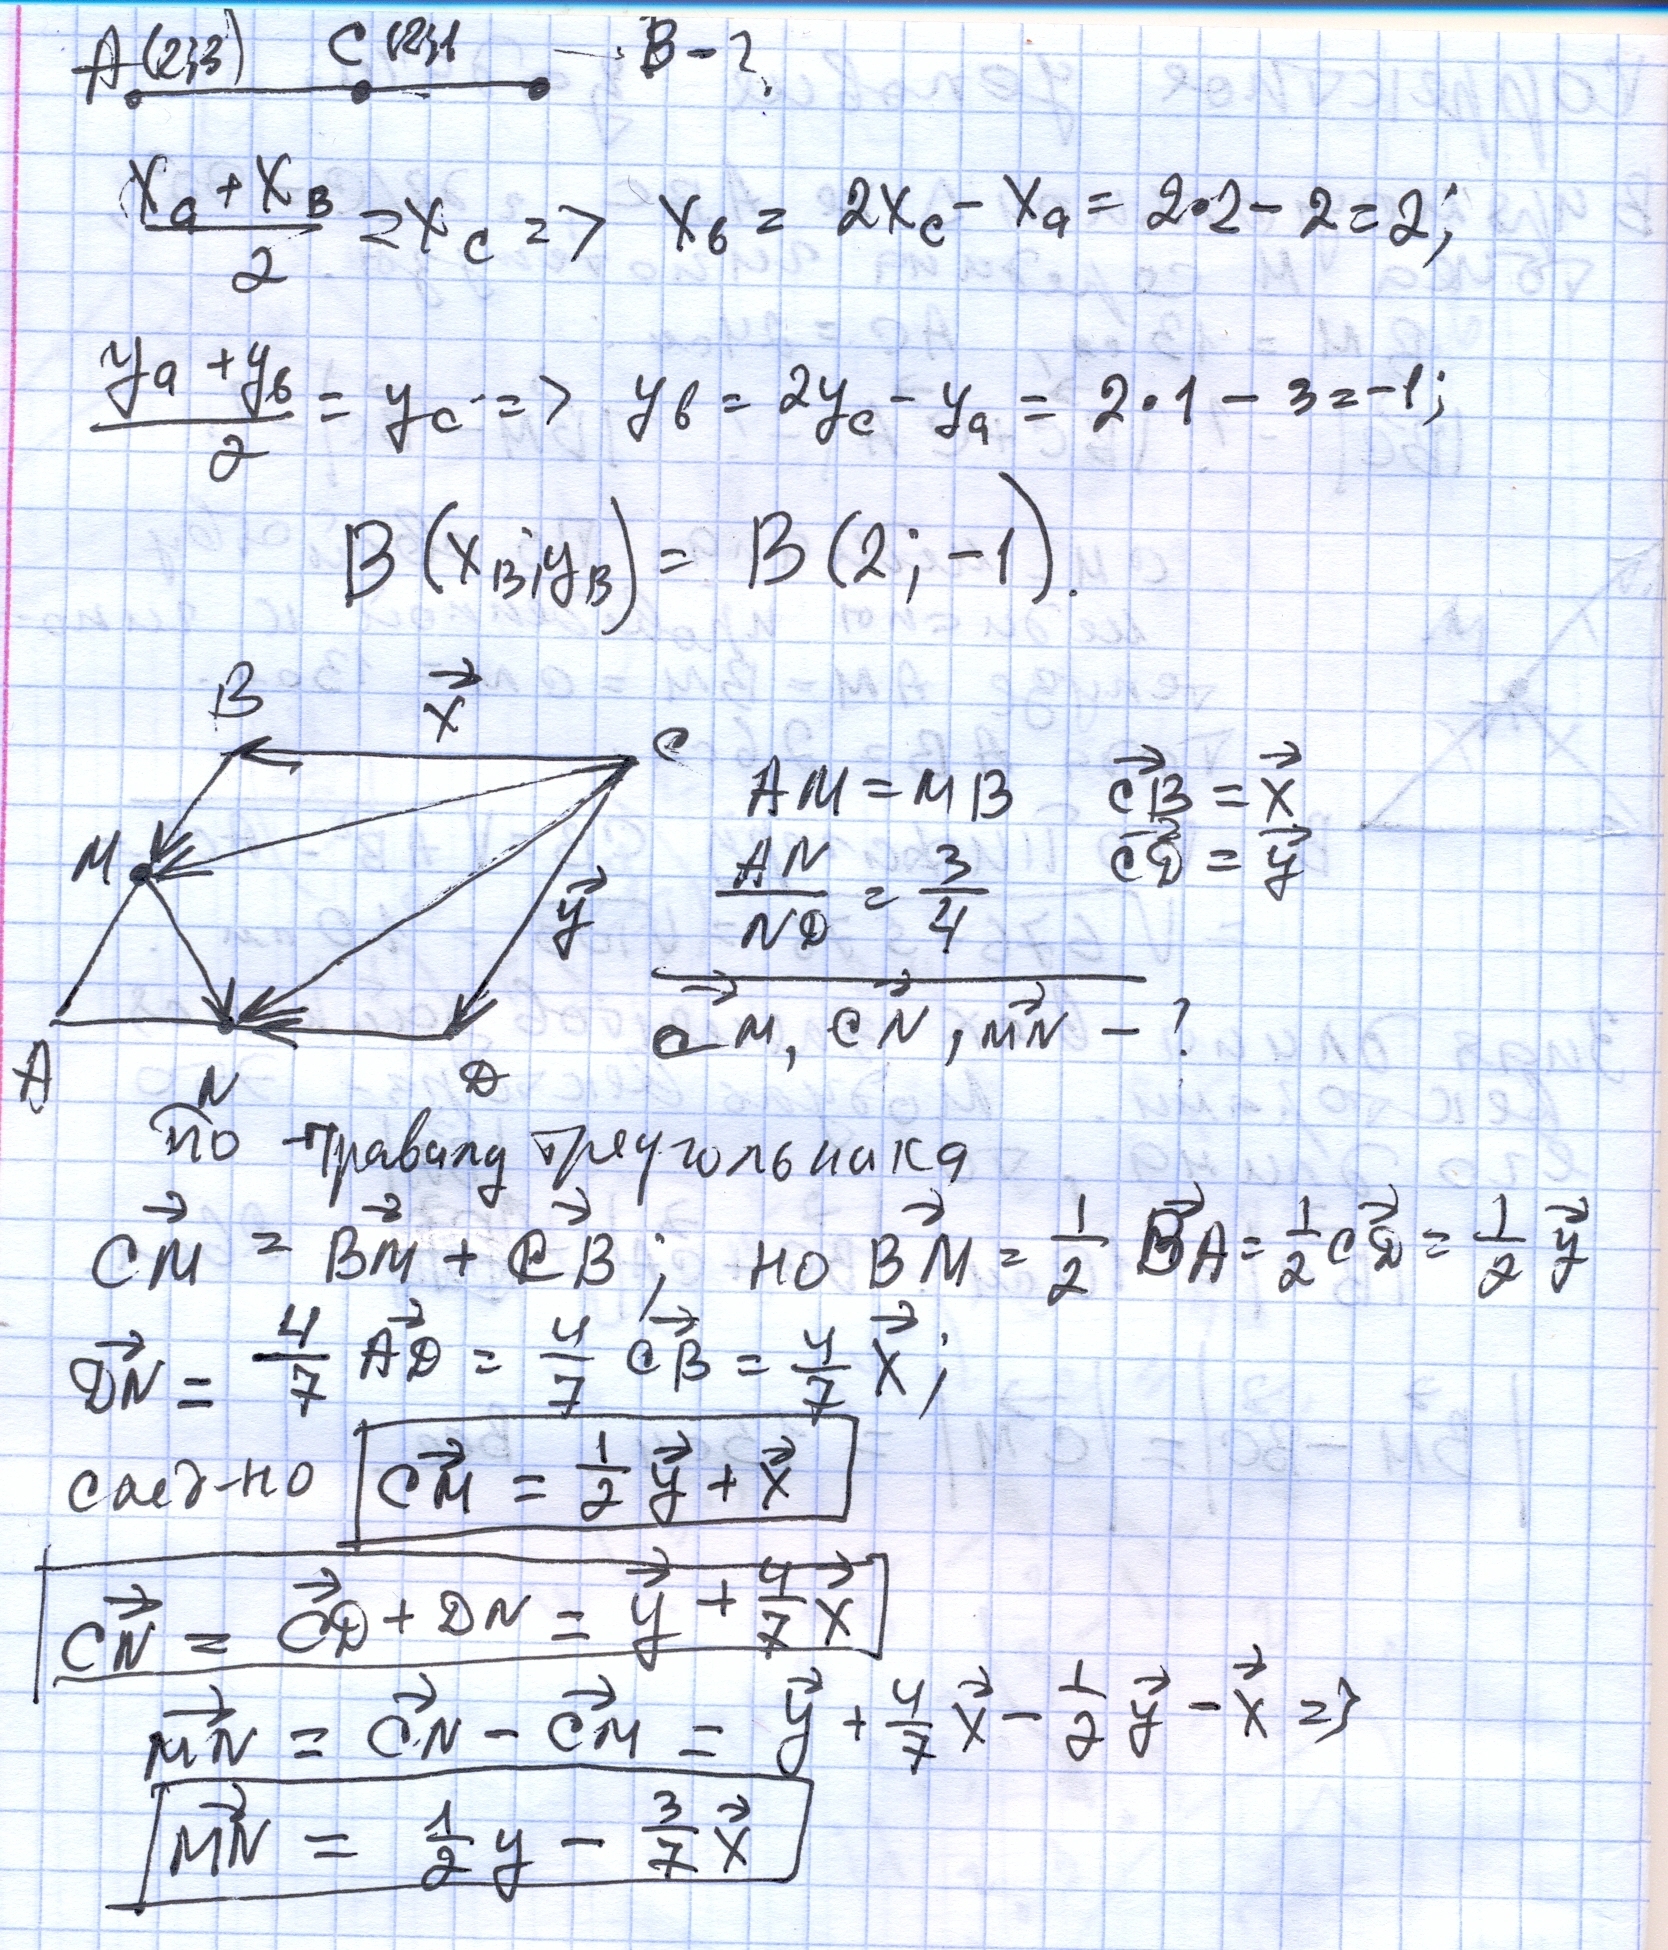 A(2;3) C(2;1 B-?
(Xa + XB)/2 = Xc => Xв = 2Xc - Xa = 2•2 - 2 = 2;
(ya + yв)/2 = yc => yв = 2yc - ya = 2•1 - 3 = -1;
B(XB;yB) = B(2; -1).
B X⃗ C
M y⃗
A N D
AM = MB CB⃗ = X⃗
AN/ND = 3/4 CD⃗ = y⃗
CM⃗, CN⃗, MN⃗ - ?
по правилу треугольника
CM⃗ = BM⃗ + CB⃗; но BM⃗ = 1/2 BA⃗ = 1/2 CD⃗ = 1/2 y⃗
DN⃗ = 4/7 AD⃗ = 4/7 CB⃗ = 4/7 X⃗;
след-но CM⃗ = 1/2 y⃗ + X⃗
CN⃗ = CD⃗ + DN = y⃗ + 4/7 X⃗
MN⃗ = CN⃗ - CM⃗ = y⃗ + 4/7 X⃗ - 1/2 y⃗ - X⃗ =>
MN⃗ = 1/2 y - 3/7 X⃗